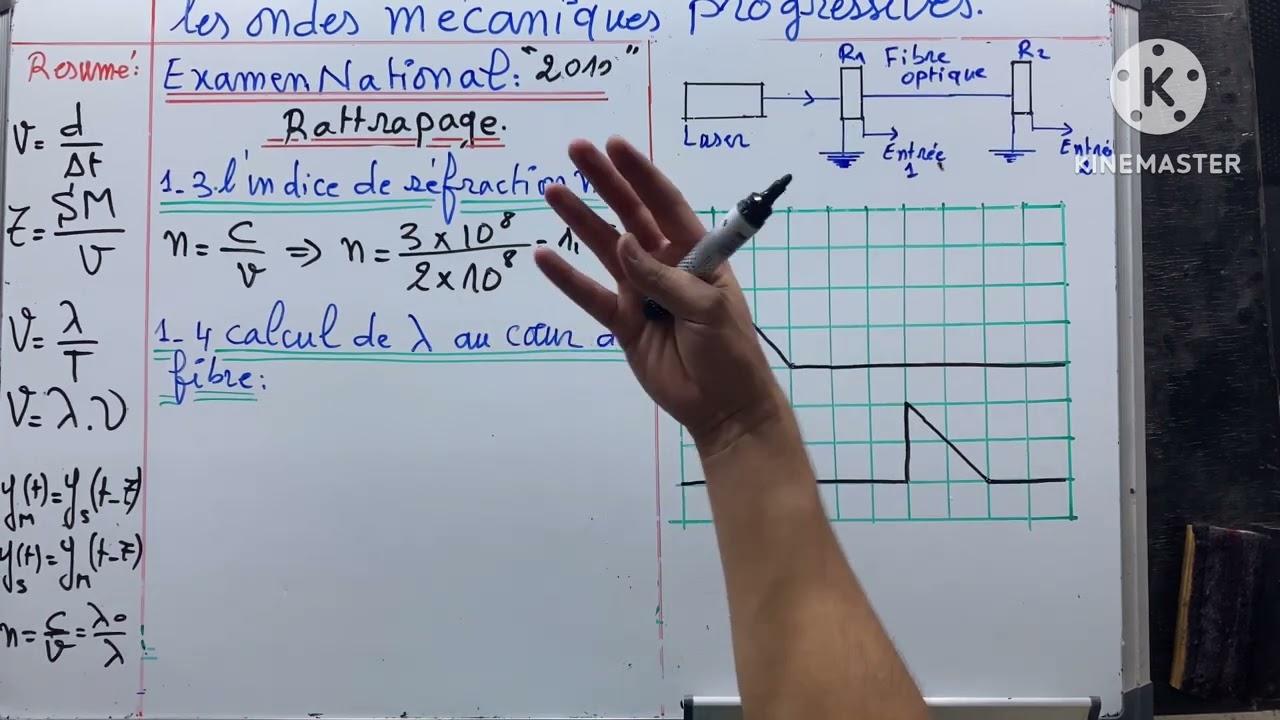 les ondes mécaniques progressives.
Resumé:
V = d/Δt
τ = SM/V
V = λ/T
V = λ.ν
y_M(t) = y_S(t-τ)
y_S(t) = y_M(t-τ)
n = c/v = λ₀/λ
Examen National: "2015"
Rattrapage.
1-3.l'indice de réfraction
n = c/v ⇒ n = 3×10⁸/2×10⁸ = 1,
1-4 calcul de λ au cœur
fibre:
Laser
R1
Fibre
optique
R2
Entrée
1
Entrée
K
KINEMASTER